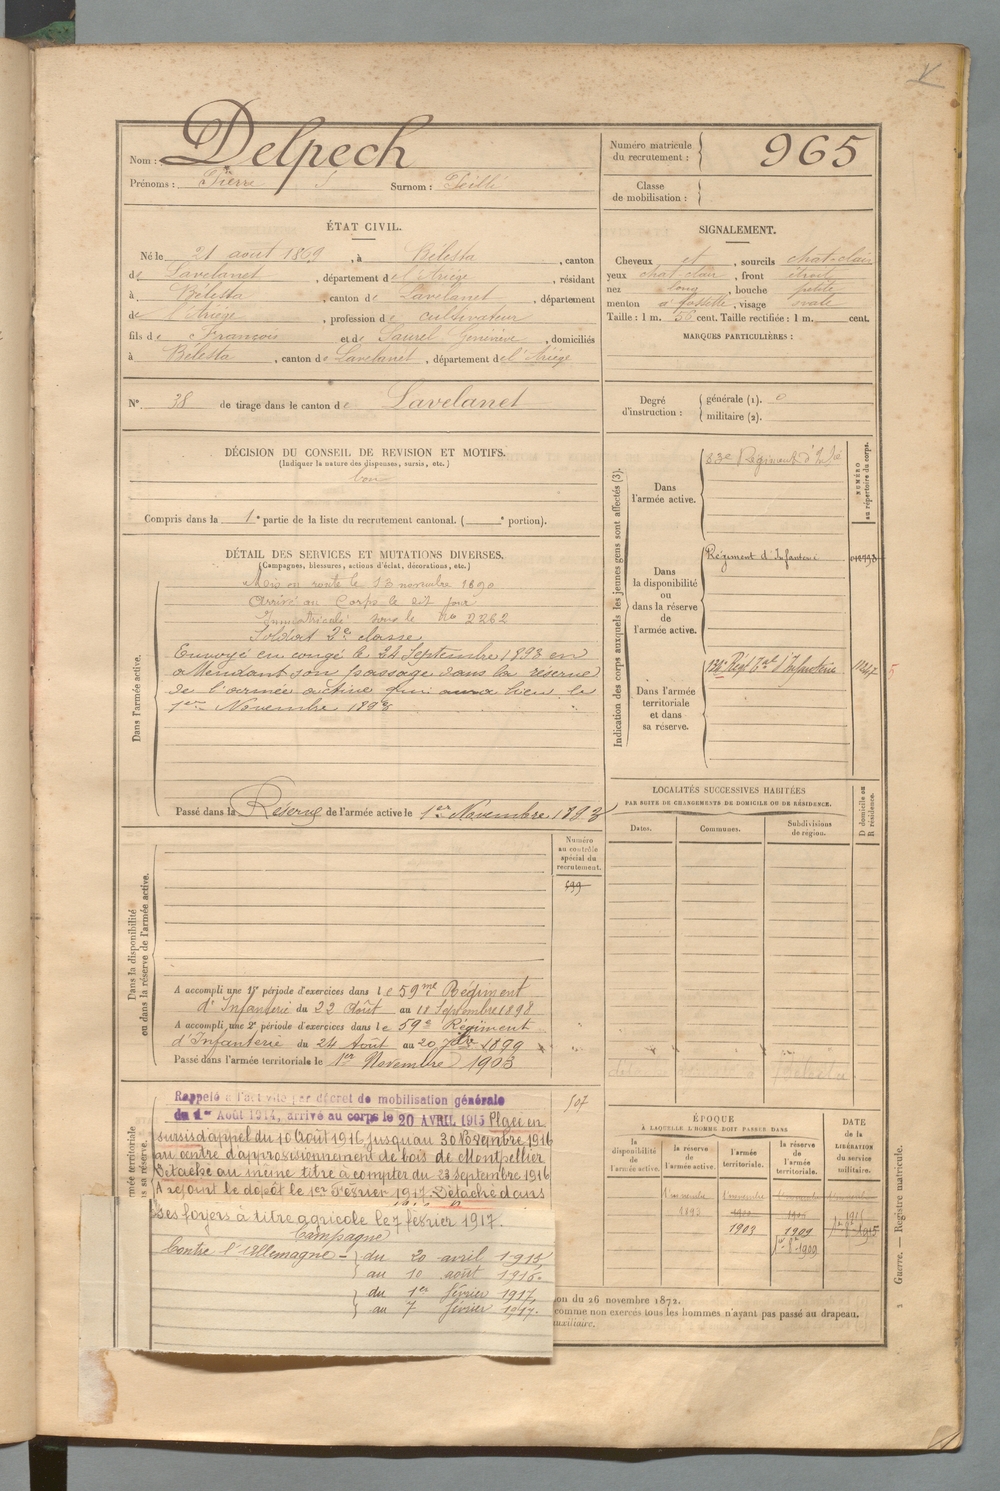 Nom : Delpech
Prénoms : Pierre Surnom :
Numéro matricule du recrutement : 965
Classe de mobilisation :
ÉTAT CIVIL.
Né le 21 août 1869, à Bélesta, canton
de Lavelanet, département de l'Ariège, résidant
à Bélesta, canton de Lavelanet, département
de l'Ariège, profession de cultivateur
fils de François et de Saurel Geneviève, domiciliés
à Bélesta, canton de Lavelanet, département de l'Ariège
N° 38 de tirage dans le canton de Lavelanet
SIGNALEMENT.
Cheveux et, sourcils chat-clair
yeux chat clair, front étroit
nez long, bouche petite
menton à fossette, visage ovale
Taille : 1 m. 56 cent. Taille rectifiée : 1 m. cent.
MARQUES PARTICULIÈRES :
Degré d'instruction :
générale (1). 0
militaire (2).
DÉCISION DU CONSEIL DE REVISION ET MOTIFS.
(Indiquer la nature des dispenses, sursis, etc.)
bon
Compris dans la 1e partie de la liste du recrutement cantonal. (e portion).
DÉTAIL DES SERVICES ET MUTATIONS DIVERSES.
(Campagnes, blessures, actions d'éclat, décorations, etc.)
Dans l'armée active.
Mis en route le 13 novembre 1890
Arrivé au Corps le dit jour
Immatriculé sous le No 2262
Soldat 2e classe
Envoyé en congé le 24 Septembre 1893 en
attendant son passage dans la réserve
de l'armée active qui aura lieu le
1er Novembre 1893
Passé dans la Réserve de l'armée active le 1er Novembre 1893
Indication des corps auxquels les jeunes gens sont affectés (3).
NUMÉRO au répertoire du corps.
Dans l'armée active.
83e Régiment d'Infie
Dans la disponibilité ou dans la réserve de l'armée active.
Régiment d'Infanterie
Dans l'armée territoriale et dans sa réserve.
134e Régt Tal d'Infanterie
LOCALITÉS SUCCESSIVES HABITÉES
PAR SUITE DE CHANGEMENTS DE DOMICILE OU DE RÉSIDENCE.
Dates. Communes. Subdivisions de région.
D domicile ou R résidence.
Dans la disponibilité ou dans la réserve de l'armée active.
Numéro au contrôle spécial du recrutement.
699
A accompli une 1re période d'exercices dans le 59me Régiment
d'Infanterie du 22 Août au 18 Septembre 1898
A accompli une 2e période d'exercices dans le 59e Régiment
d'Infanterie du 24 Août au 20 7bre 1899
Passé dans l'armée territoriale le 1er Novembre 1903
507
Rappelé à l'activité par décret de mobilisation générale
du 1er Août 1914, arrivé au corps le 20 AVRIL 1915 Placé en
sursis d'appel du 10 Août 1916 jusqu'au 30 Novembre 1916
au centre d'approvisionnement de bois de Montpellier
Détaché au même titre à compter du 23 Septembre 1916
A rejoint le dépôt le 1er Février 1917. Détaché dans
ses foyers à titre agricole le 7 février 1917.
Campagne
Contre l'Allemagne - du 20 avril 1915
au 10 août 1916.
du 1er février 1917
au 7 février 1917.
ÉPOQUE
À LAQUELLE L'HOMME DOIT PASSER DANS
la disponibilité de l'armée active.
la réserve de l'armée active.
l'armée territoriale.
la réserve de l'armée territoriale.
DATE de la LIBÉRATION du service militaire.
1er novembre 1893
1er novembre 1903
1909
on du 26 novembre 1872.
comme non exercés tous les hommes n'ayant pas passé au drapeau.
auxiliaire.
Guerre. — Registre matricule.